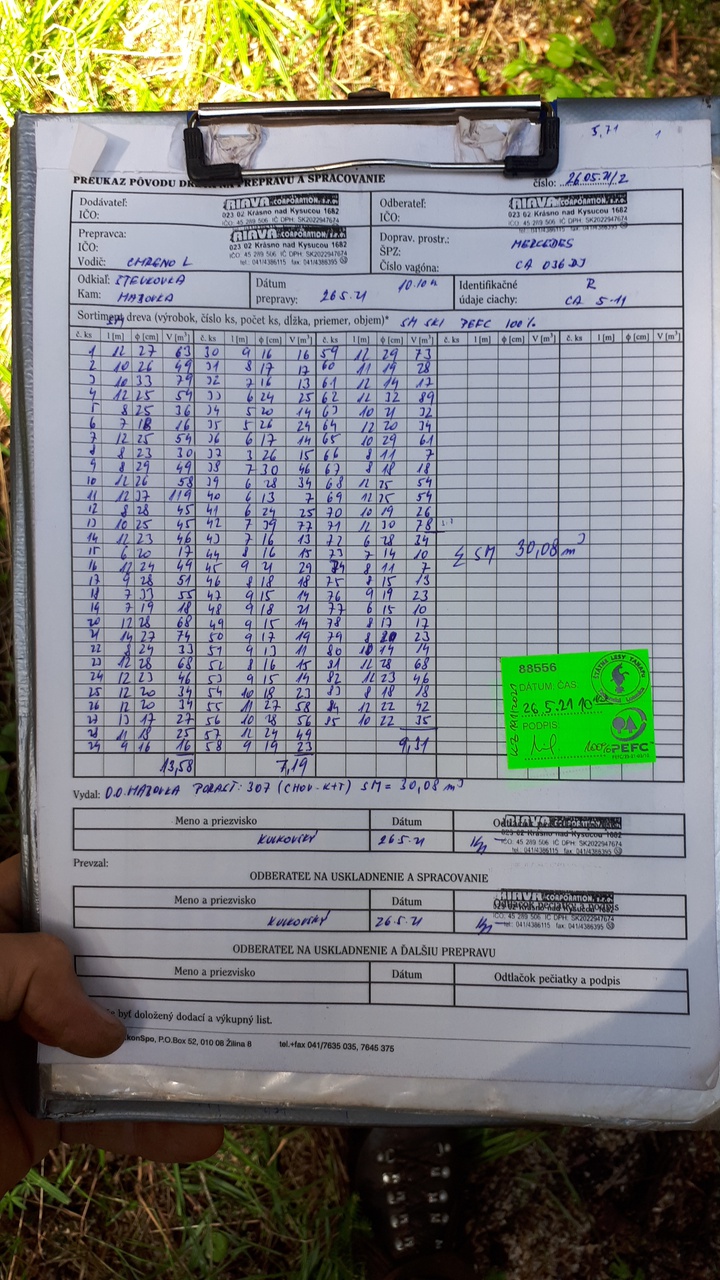 5,71 1
PREUKAZ PÔVODU DREVA NA PREPRAVU A SPRACOVANIE
číslo: 26 05.21/2
Dodávateľ:
IČO:
RIAVA CORPORATION, s.r.o.
023 02 Krásno nad Kysucou 1682
IČO: 45 289 506 IČ DPH: SK2022947674
Odberateľ:
IČO:
RIAVA CORPORATION, s.r.o.
023 02 Krásno nad Kysucou 1682
IČO: 45 289 506 IČ DPH: SK2022947674
tel.: 041/4386115 fax: 041/4386395
Prepravca:
IČO:
Vodič: CHRENO L
RIAVA CORPORATION, s.r.o.
023 02 Krásno nad Kysucou 1682
IČO: 45 289 506 IČ DPH: SK2022947674
tel.: 041/4386115 fax: 041/4386395
Doprav. prostr.: MERCEDES
ŠPZ:
Číslo vagóna: CA 036 DJ
Odkiaľ:
Kam: MAZOVKA
Dátum
prepravy: 26 5. 21 10.10 h
Identifikačné R
údaje ciachy: CA 5-11
Sortiment dreva (výrobok, číslo ks, počet ks, dĺžka, priemer, objem)* SM SKI PEFC 100%
SM
č. ks l [m] ϕ [cm] V [m³] č. ks l [m] ϕ [cm] V [m³] č. ks l [m] ϕ [cm] V [m³] č. ks l [m] ϕ [cm] V [m³] č. ks l [m] ϕ [cm] V [m³]
1 12 27 63 30 9 16 16 59 12 29 73
2 10 26 49 31 8 17 17 60 11 19 28
3 10 33 79 32 7 16 13 61 12 14 17
4 12 25 54 33 6 24 25 62 12 32 89
5 8 25 36 34 5 20 14 63 10 21 32
6 7 18 16 35 5 26 24 64 12 20 34
7 12 25 54 36 6 17 14 65 10 29 61
8 8 23 30 37 3 26 15 66 8 11 7
9 8 29 49 38 7 30 46 67 8 18 18
10 12 26 58 39 6 28 34 68 12 25 54
11 12 37 119 40 6 13 7 69 12 25 54
12 8 28 45 41 6 24 25 70 10 19 26
13 10 25 45 42 7 39 77 71 12 30 78
14 12 23 46 43 7 16 13 72 6 28 34
15 6 20 17 44 8 16 15 73 7 14 10
16 12 24 49 45 9 21 29 74 8 11 7
17 9 28 51 46 8 18 18 75 8 15 13
18 7 33 55 47 9 15 14 76 9 19 23
19 7 19 18 48 9 18 21 77 6 15 10
20 12 28 68 49 9 15 14 78 8 17 17
21 14 27 74 50 9 17 19 79 8 20 23
22 8 24 33 51 9 13 11 80 10 14 14
23 12 28 68 52 8 16 15 81 12 28 68
24 12 23 46 53 9 15 14 82 12 23 46
25 12 20 34 54 10 18 23 83 8 18 18
26 12 20 34 55 11 27 58 84 12 22 42
27 13 17 27 56 10 28 56 85 10 22 35
28 11 18 25 57 12 24 49
29 9 16 16 58 9 19 23 9,31
13,58 7,19
Σ SM 30,08 m³
88556
DÁTUM, ČAS:
26 5.21 10
PODPIS:
ŠTÁTNE LESY TANAPU
100% PEFC
Vydal: O.O. MAZOVKA PORAST: 307 (CHOV-K+T) SM = 30,08 m³
Meno a priezvisko Dátum Odtlačok pečiatky a podpis
26 5. 21
RIAVA CORPORATION, s.r.o.
023 02 Krásno nad Kysucou 1682
IČO: 45 289 506 IČ DPH: SK2022947674
tel.: 041/4386115 fax: 041/4386395
Prevzal:
ODBERATEĽ NA USKLADNENIE A SPRACOVANIE
Meno a priezvisko Dátum Odtlačok pečiatky a podpis
26 5. 21
RIAVA CORPORATION, s.r.o.
023 02 Krásno nad Kysucou 1682
IČO: 45 289 506 IČ DPH: SK2022947674
tel.: 041/4386115 fax: 041/4386395
ODBERATEĽ NA USKLADNENIE A ĎALŠIU PREPRAVU
Meno a priezvisko Dátum Odtlačok pečiatky a podpis
byť doložený dodací a výkupný list.
konSpo, P.O.Box 52, 010 08 Žilina 8 tel.+fax 041/7635 035, 7645 375